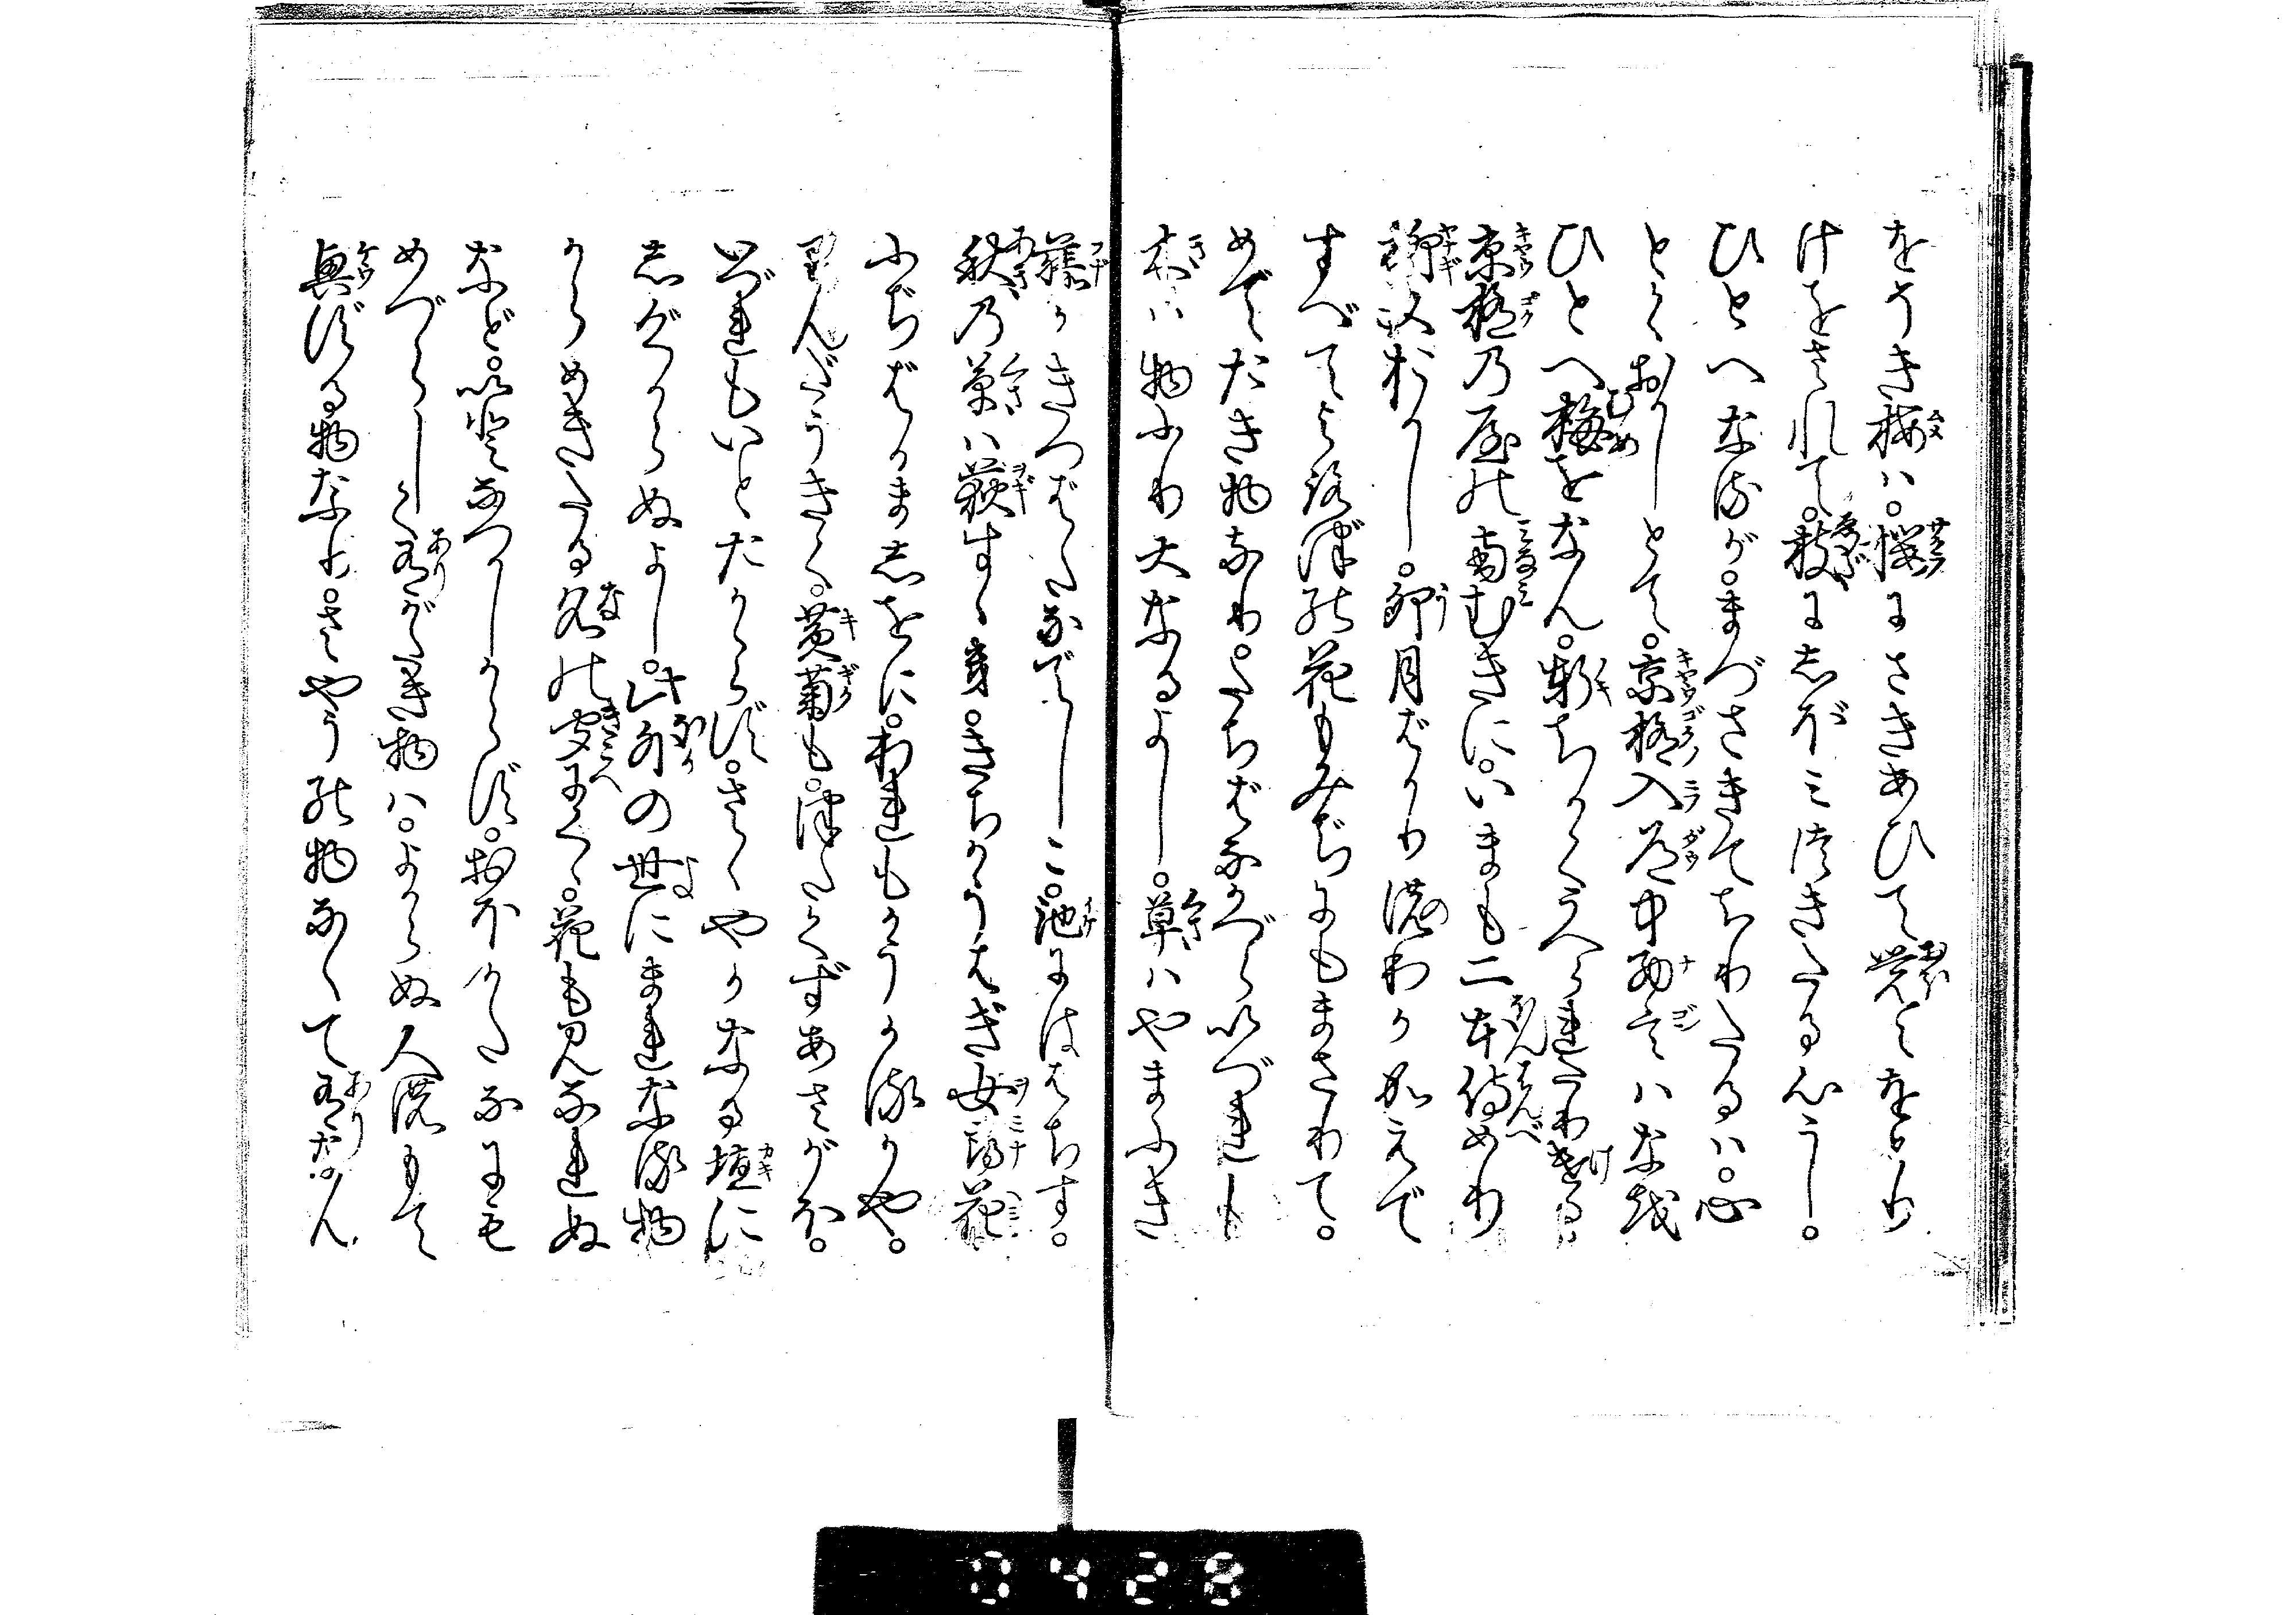 をそき梅は。桜にさきあひて覚えをとり
けをされて。枝にしぼみつきたる心うし。
ひとへなるが。まづさきてちりたるは。心
とくおかしとて。京極入道中納言はなを
ひとへ梅をなん。軒ちかくうへられたりける
京極の屋の南むきに。いまも二本侍めり
柳又おかし。卯月ばかりのわかかえで
すべてよろづの花もみぢにもまさりて。
めでたき物なり。たちばなかつらいづれも
木は物ふり大なるよし。草はやまふき
藤かきつばたなでしこ。池にははちす。
秋の草は荻すゝき。きちかうはぎ女郎花
ふぢばかましをに。われもかうかるかや。
りんだうきく。黄菊も。つたくずあさがほ。
いづれもいとたかからず。さゝやかなる墻に
しげからぬよし。此外の世にまれなる物
からめきたる名の聞にくゝ。花も見なれぬ
など。いとなつかしからず。おほかたなにも
めづらしく有がたき物は。よからぬ人のもて
興ずる物なり。さやうの物なくて有なん